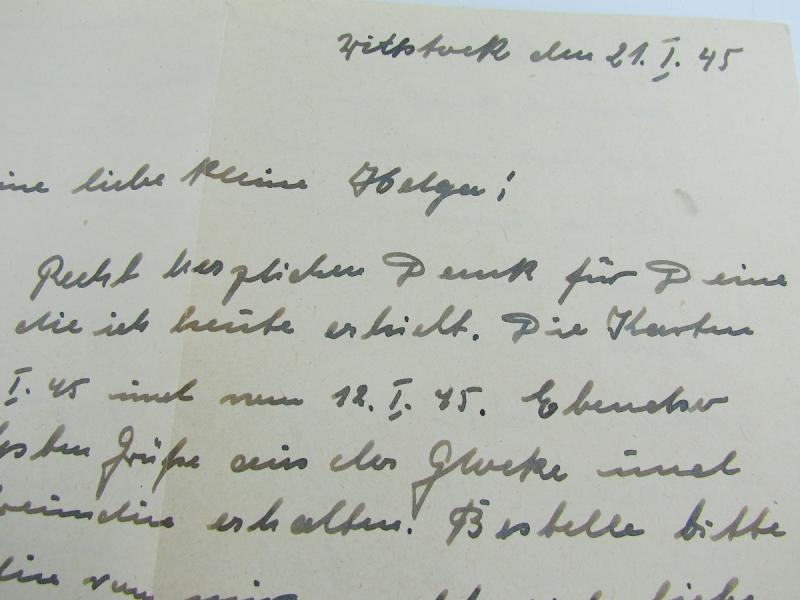 Wittstock den 21. I. 45
ine liebe kleine Helga!
Recht herzlichen Dank für Deine
die ich heute erhielt. Die Karten
I. 45 und vom 12. I. 45. Ebenso
sten Grüße aus der Glocke und
reundin erhalten. Bestelle bitte
din von mir liebe